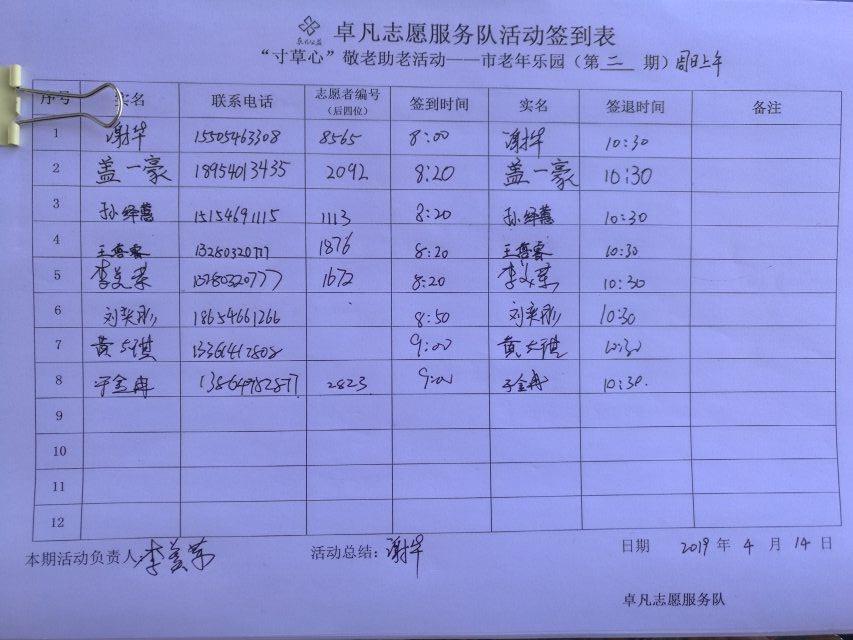 卓凡公益
卓凡志愿服务队活动签到表
“寸草心”敬老助老活动——市老年乐园（第 二 期）周日上午
序号 实名 联系电话 志愿者编号（后四位） 签到时间 实名 签退时间 备注
1 谢华 15505463308 8565 8:00 谢华 10:30
2 盖一豪 18954013435 2092 8:20 盖一豪 10:30
3 孙绎蕙 15154691115 1113 8:20 孙绎蕙 10:30
4 13280320777 1876 8:20 10:30
5 李美荣 13280320777 1672 8:20 李美荣 10:30
6 刘奕彤 18654661266 8:50 刘奕彤 10:30
7 13361417808 9:00 10:30
8 于金冉 13864782877 2823 9:00 于金冉 10:30.
9
10
11
12
本期活动负责人 李美荣 活动总结：谢华 日期 2019 年 4 月 14 日
卓凡志愿服务队